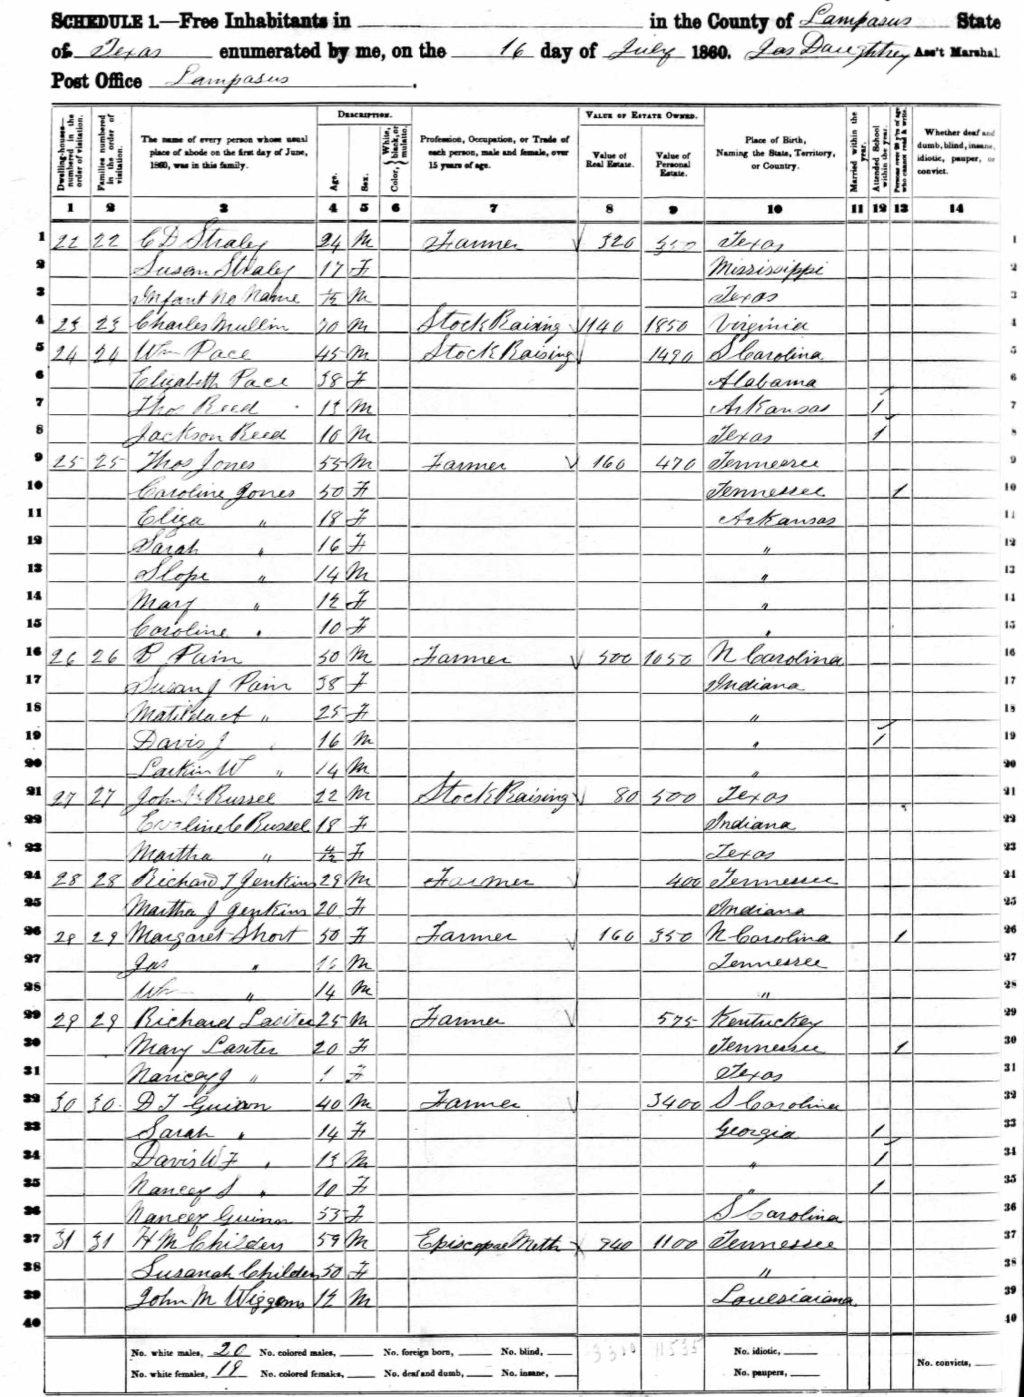 SCHEDULE 1.—Free Inhabitants in in the County of Lampasus State
of Texas enumerated by me, on the 16 day of July 1860. Jas Daughtrey Ass't Marshal.
Post Office Lampasus.
Dwelling-houses—numbered in the order of visitation. Families numbered in the order of visitation. The name of every person whose usual place of abode on the first day of June, 1860, was in this family. DESCRIPTION. Age. Sex. Color, { White, black, or mulatto. Profession, Occupation, or Trade of each person, male and female, over 15 years of age. VALUE OF ESTATE OWNED. Value of Real Estate. Value of Personal Estate. Place of Birth, Naming the State, Territory, or Country. Married within the year. Attended School within the year. Persons over 20 y'rs of age who cannot read & write. Whether deaf and dumb, blind, insane, idiotic, pauper, or convict.
1 2 3 4 5 6 7 8 9 10 11 12 13 14
1 22 22 C D Straley 24 M Farmer 320 Texas 1
2 Susan Straley 17 F Mississippi 2
3 Infant No Name M Texas 3
4 23 23 Charles Mullin M Stock Raising 1140 1850 Virginia 4
5 24 24 Wm Pace 45 M Stock Raising 1490 S Carolina 5
6 Elizabeth Pace 38 F Alabama 6
7 Thos Reed 13 M Arkansas 1 7
8 Jackson Reed 10 M Texas 1 8
9 25 25 Thos Jones 55 M Farmer 160 470 Tennessee 9
10 Caroline Jones 50 F Tennessee 1 10
11 Eliza " 18 F Arkansas 11
12 Sarah " 16 F " 12
13 Slope " 14 M " 13
14 Mary " 12 F " 14
15 Caroline " 10 F " 15
16 26 26 P Pain 50 M Farmer 500 1050 N Carolina 16
17 Susan J Pain 38 F Indiana 17
18 Matilda A " 25 F " 18
19 Davis J 16 M " 1 19
20 Larkin W " 14 M " 20
21 27 27 John Russel 22 M Stock Raising 80 500 Texas 21
22 Eveline C Russel 18 F Indiana 22
23 Martha " 4/12 F Texas 23
24 28 28 Richard T Jenkins 29 M Farmer 400 Tennessee 24
25 Martha J Jenkins 20 F Indiana 25
26 29 29 Margaret Short 50 F Farmer 160 350 N Carolina 1 26
27 Jas " 16 M Tennessee 27
28 Wm " 14 M " 28
29 29 29 Richard Lasiter 25 M Farmer 575 Kentuckey 29
30 Mary Lasiter 20 F Tennessee 1 30
31 Nancey J " 1 F Texas 31
32 30 30 D T Guinn 40 M Farmer 3400 S Carolina 32
33 Sarah " 14 F Georgia 1 33
34 Davis W F " 13 M " 1 34
35 Nancey S " 10 F " 1 35
36 Nancey Guinn 53 F S Carolina 36
37 31 31 H M Childers 59 M Episcopae Meth 940 1100 Tennessee 37
38 Susanah Childers 50 F " 38
39 John M Wiggons 12 M Louesiaiana 39
40 40
No. white males, 20 No. colored males, No. foreign born, No. blind, 3300 11535 No. idiotic,
No. white females, 19 No. colored females, No. deaf and dumb, No. insane, No. paupers, No. convicts,